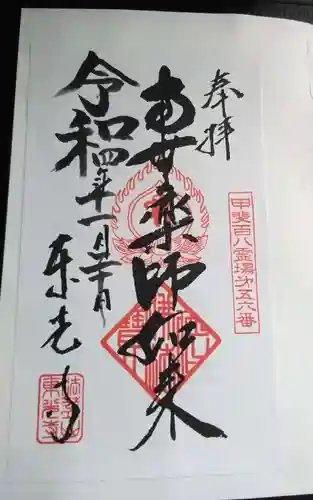 奉拝
甲斐百八霊場第五六番
南無薬師如来
令和四年十一月二十日
東光寺